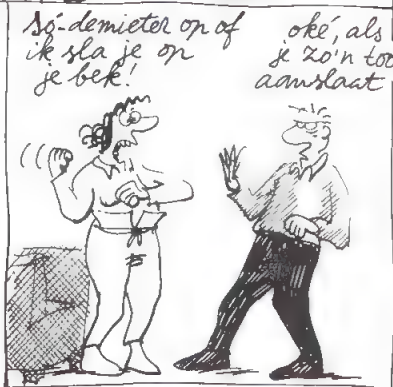 só-demieter op of
ik sla je op
je bek!
oké, als
je zo'n too
aanslaat